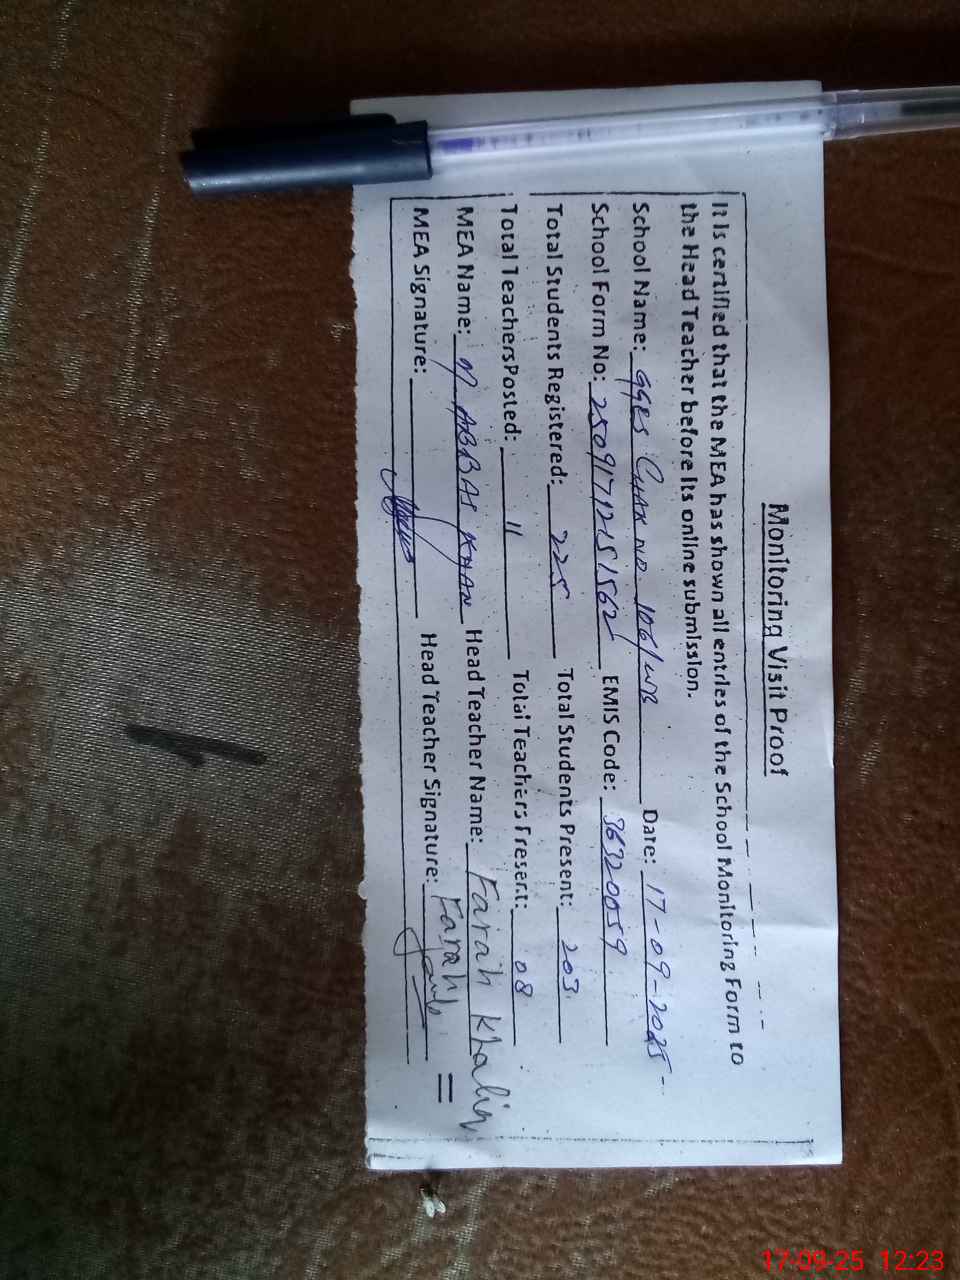 Monitoring Visit Proof
It is certified that the MEA has shown all entries of the School Monitoring Form to
the Head Teacher before its online submission.
School Name: GGES Chak No 106/WB Date: 17-09-2025
School Form No: 25091712151562 EMIS Code: 36320059
Total Students Registered: 225 Total Students Present: 203
Total TeachersPosted: 11 Total Teachers Present: 08
MEA Name: M ABBAS KHAN Head Teacher Name: Farah Khaliq
MEA Signature: Head Teacher Signature: Farah
17-09-25 12:23